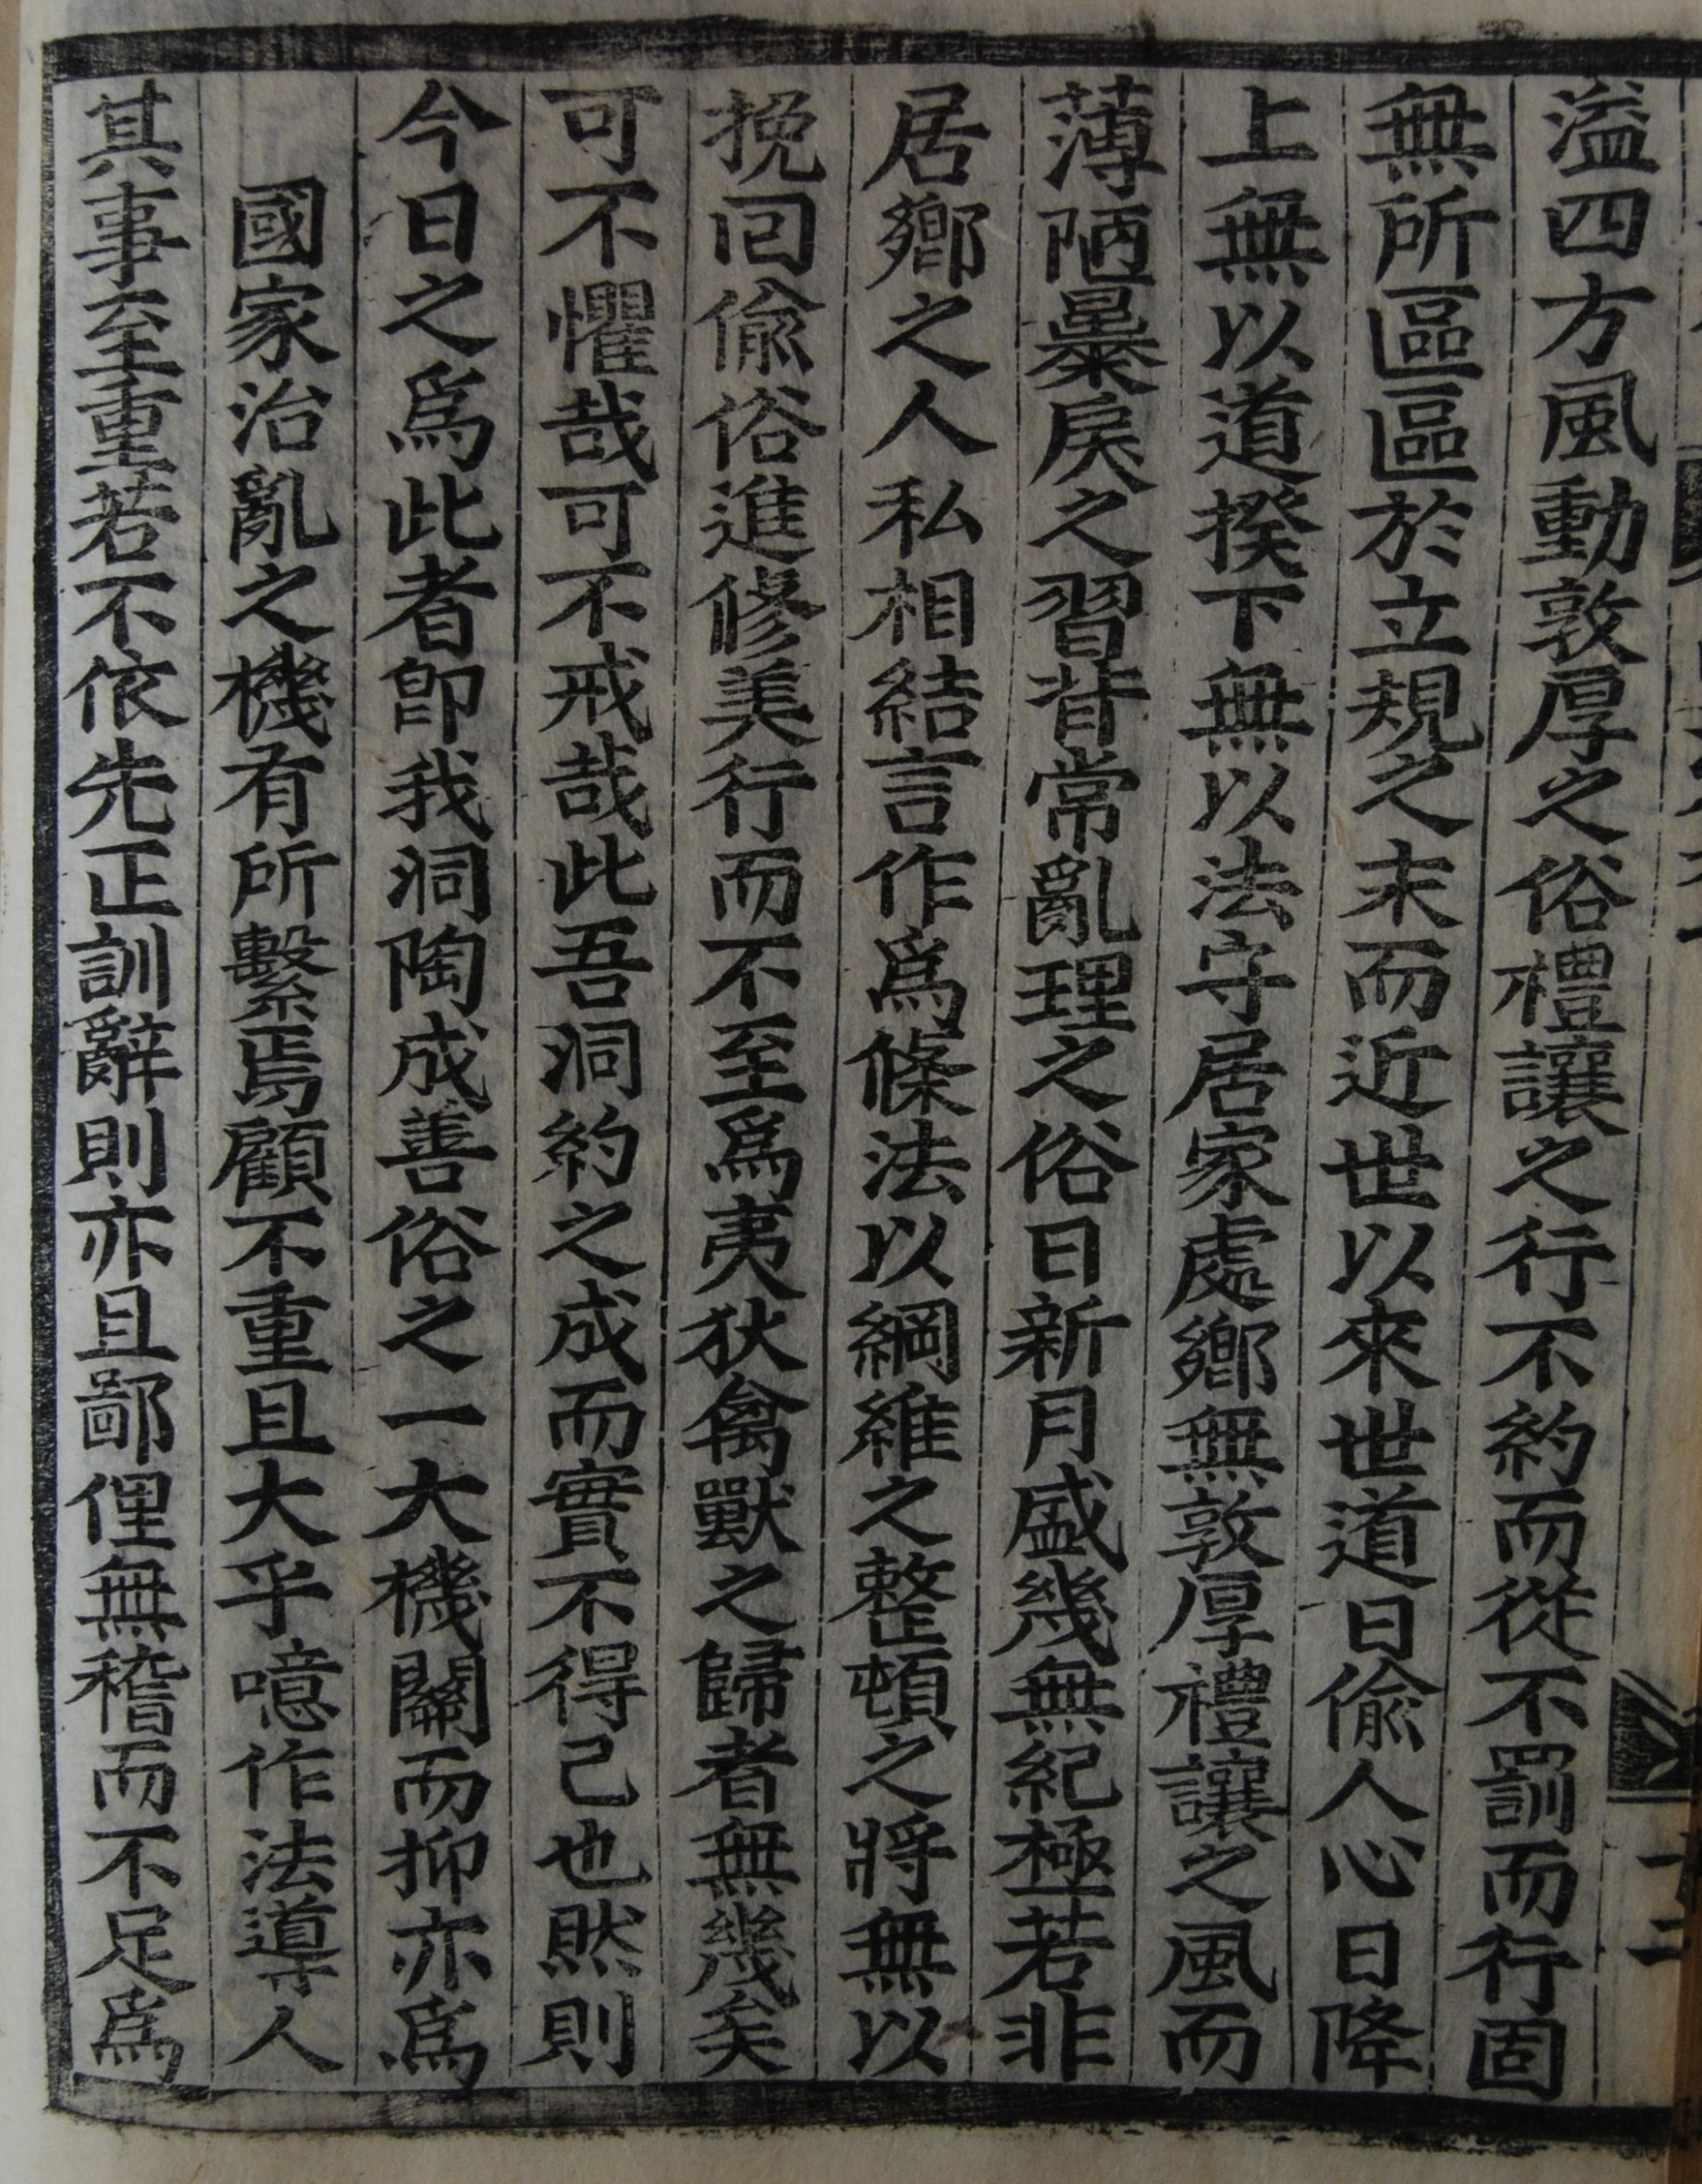 溢四方風動敦厚之俗禮讓之行不約而從不罰而行固
無所區區於立規之末而近世以來世道日偸人心日降
上無以道揆下無以法守居家處鄕無敦厚禮讓之風而
薄陋暴戾之習背常亂理之俗日新月盛幾無紀極若非
居鄕之人私相結言作爲條法以綱維之整頓之將無以
挽回偸俗進修美行而不至爲夷狄禽獸之歸者無幾矣
可不懼哉可不戒哉此吾洞約之成而實不得已也然則
今日之爲此者卽我洞陶成善俗之一大機關而抑亦爲
國家治亂之機有所繫焉顧不重且大乎噫作法導人
其事至重若不依先正訓辭則亦且鄙俚無稽而不足爲